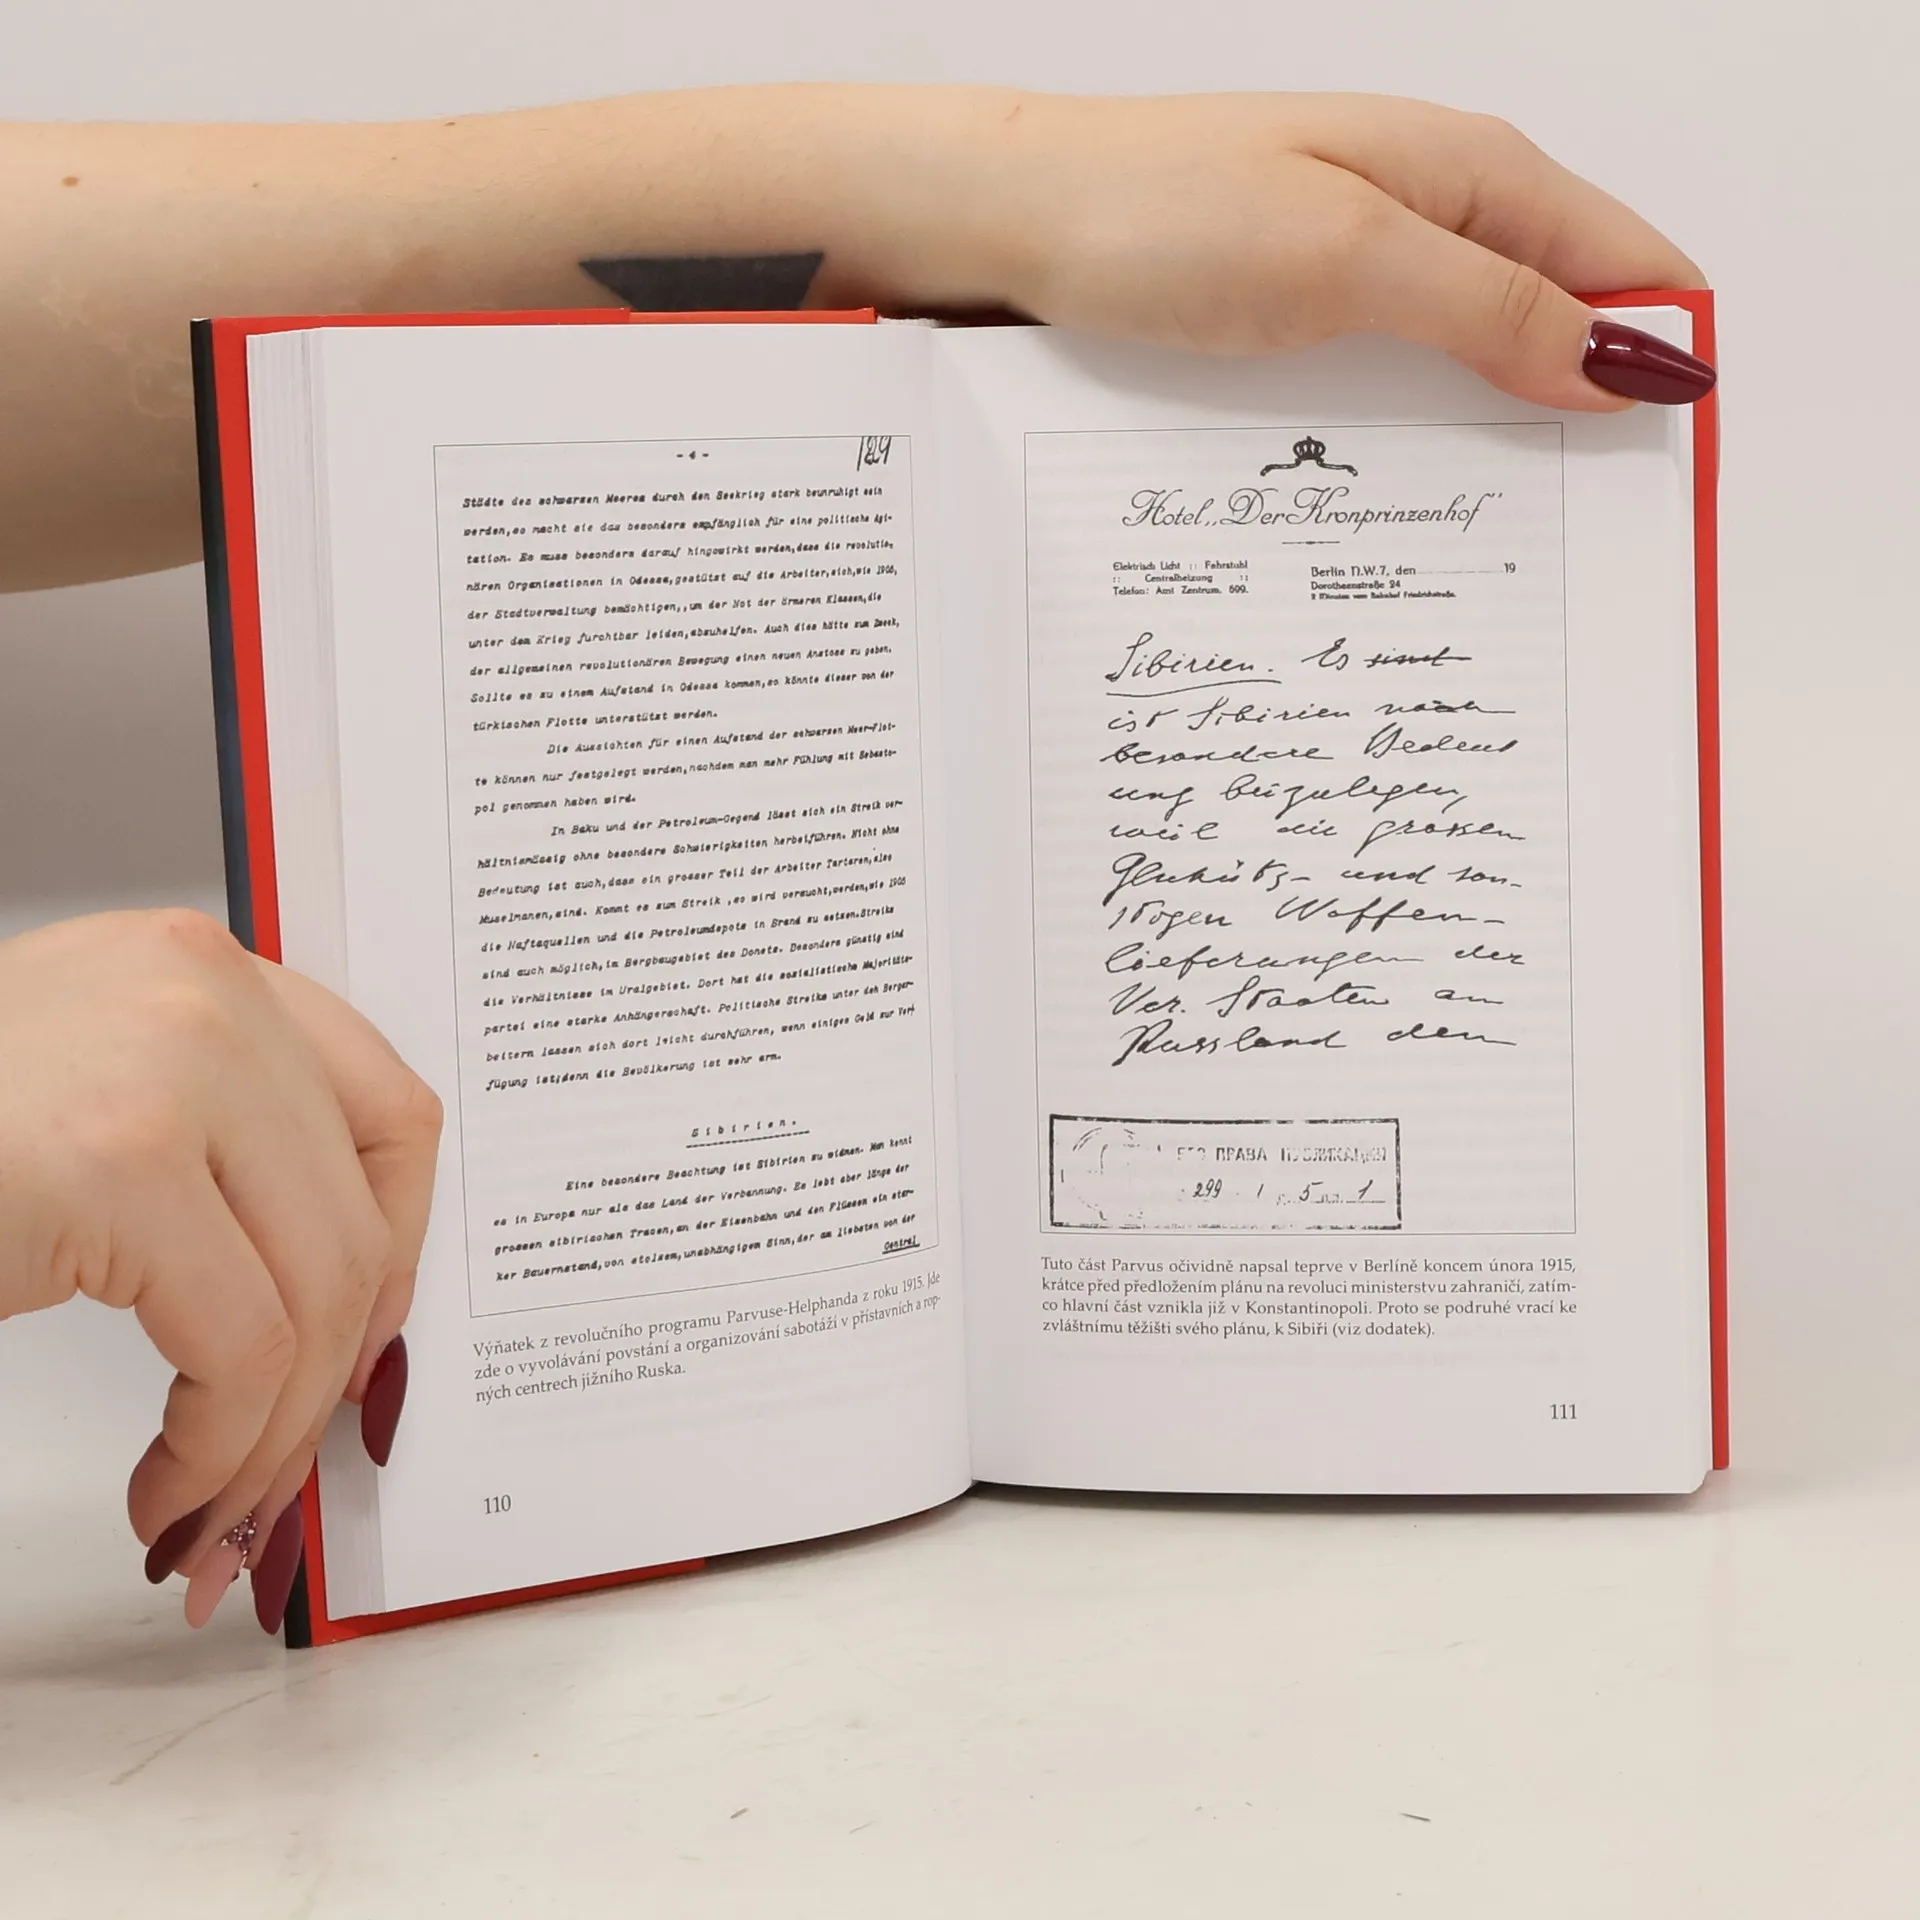 - 4 -
129
Städte des schwarzen Meeres durch den Seekrieg stark beunruhigt sein
werden, so macht sie das besonders empfänglich für eine politische Agi-
tation. Es muss besonders darauf hingewirkt werden, dass die revolutio-
nären Organisationen in Odessa, gestützt auf die Arbeiter, sich, wie 1905,
der Stadtverwaltung bemächtigen,, um der Not der ärmeren Klassen, die
unter dem Krieg furchtbar leiden, abzuhelfen. Auch dies hätte zum Zweck,
der allgemeinen revolutionären Bewegung einen neuen Anstoss zu geben.
Sollte es zu einem Aufstand in Odessa kommen, so könnte dieser von der
türkischen Flotte unterstützt werden.
Die Aussichten für einen Aufstand der schwarzen Meer-Flot-
te können nur festgelegt werden, nachdem man mehr Fühlung mit Sebasto-
pol genommen haben wird.
In Baku und der Petroleum-Gegend lässt sich ein Streik ver-
hältnismässig ohne besondere Schwierigkeiten herbeiführen. Nicht ohne
Bedeutung ist auch, dass ein grosser Teil der Arbeiter Tartaren, also
Muselmanen, sind. Kommt es zum Streik , so wird versucht, werden, wie 1905
die Naftaquellen und die Petroleumdepots in Brand zu setzen. Streiks
sind auch möglich, im Bergbaugebiet des Donets. Besonders günstig sind
die Verhältnisse im Uralgebiet. Dort hat die sozialistische Majoritäts-
partei eine starke Anhängerschaft. Politische Streiks unter den Bergar-
beitern lassen sich dort leicht durchführen, wenn einiges Geld zur Ver-
fügung ist; denn die Bevölkerung ist sehr arm.
Sibirien.
Eine besondere Beachtung ist Sibirien zu widmen. Man kennt
es in Europa nur als das Land der Verbannung. Es lebt aber längs der
grossen sibirischen Tracen, an der Eisenbahn und den Flüssen ein star-
ker Bauernstand, von stolzem, unabhängigem Sinn, der am liebsten von der
Central
Výňatek z revolučního programu Parvuse-Helphanda z roku 1915. Jde
zde o vyvolávání povstání a organizování sabotáží v přístavních a rop-
ných centrech jižního Ruska.
110
Hotel „Der Kronprinzenhof"
Elektrisch Licht :: Fahrstuhl
:: Centralheizung ::
Telefon: Amt Zentrum, 699.
Berlin N.W.7, den 19
Dorotheenstraße 24
2 Minuten vom Bahnhof Friedrichstraße.
Sibirien. Es sind
ist Sibirien noch
besondere Bedeut
ung beizulegen,
weil die grossen
Geschütz- und son-
stigen Waffen-
lieferungen der
Ver. Staaten an
Russland den
ПРАВА ПУБЛИКАЦИИ
299 1 5 1
Tuto část Parvus očividně napsal teprve v Berlíně koncem února 1915,
krátce před předložením plánu na revoluci ministerstvu zahraničí, zatím-
co hlavní část vznikla již v Konstantinopoli. Proto se podruhé vrací ke
zvláštnímu těžišti svého plánu, k Sibiři (viz dodatek).
111